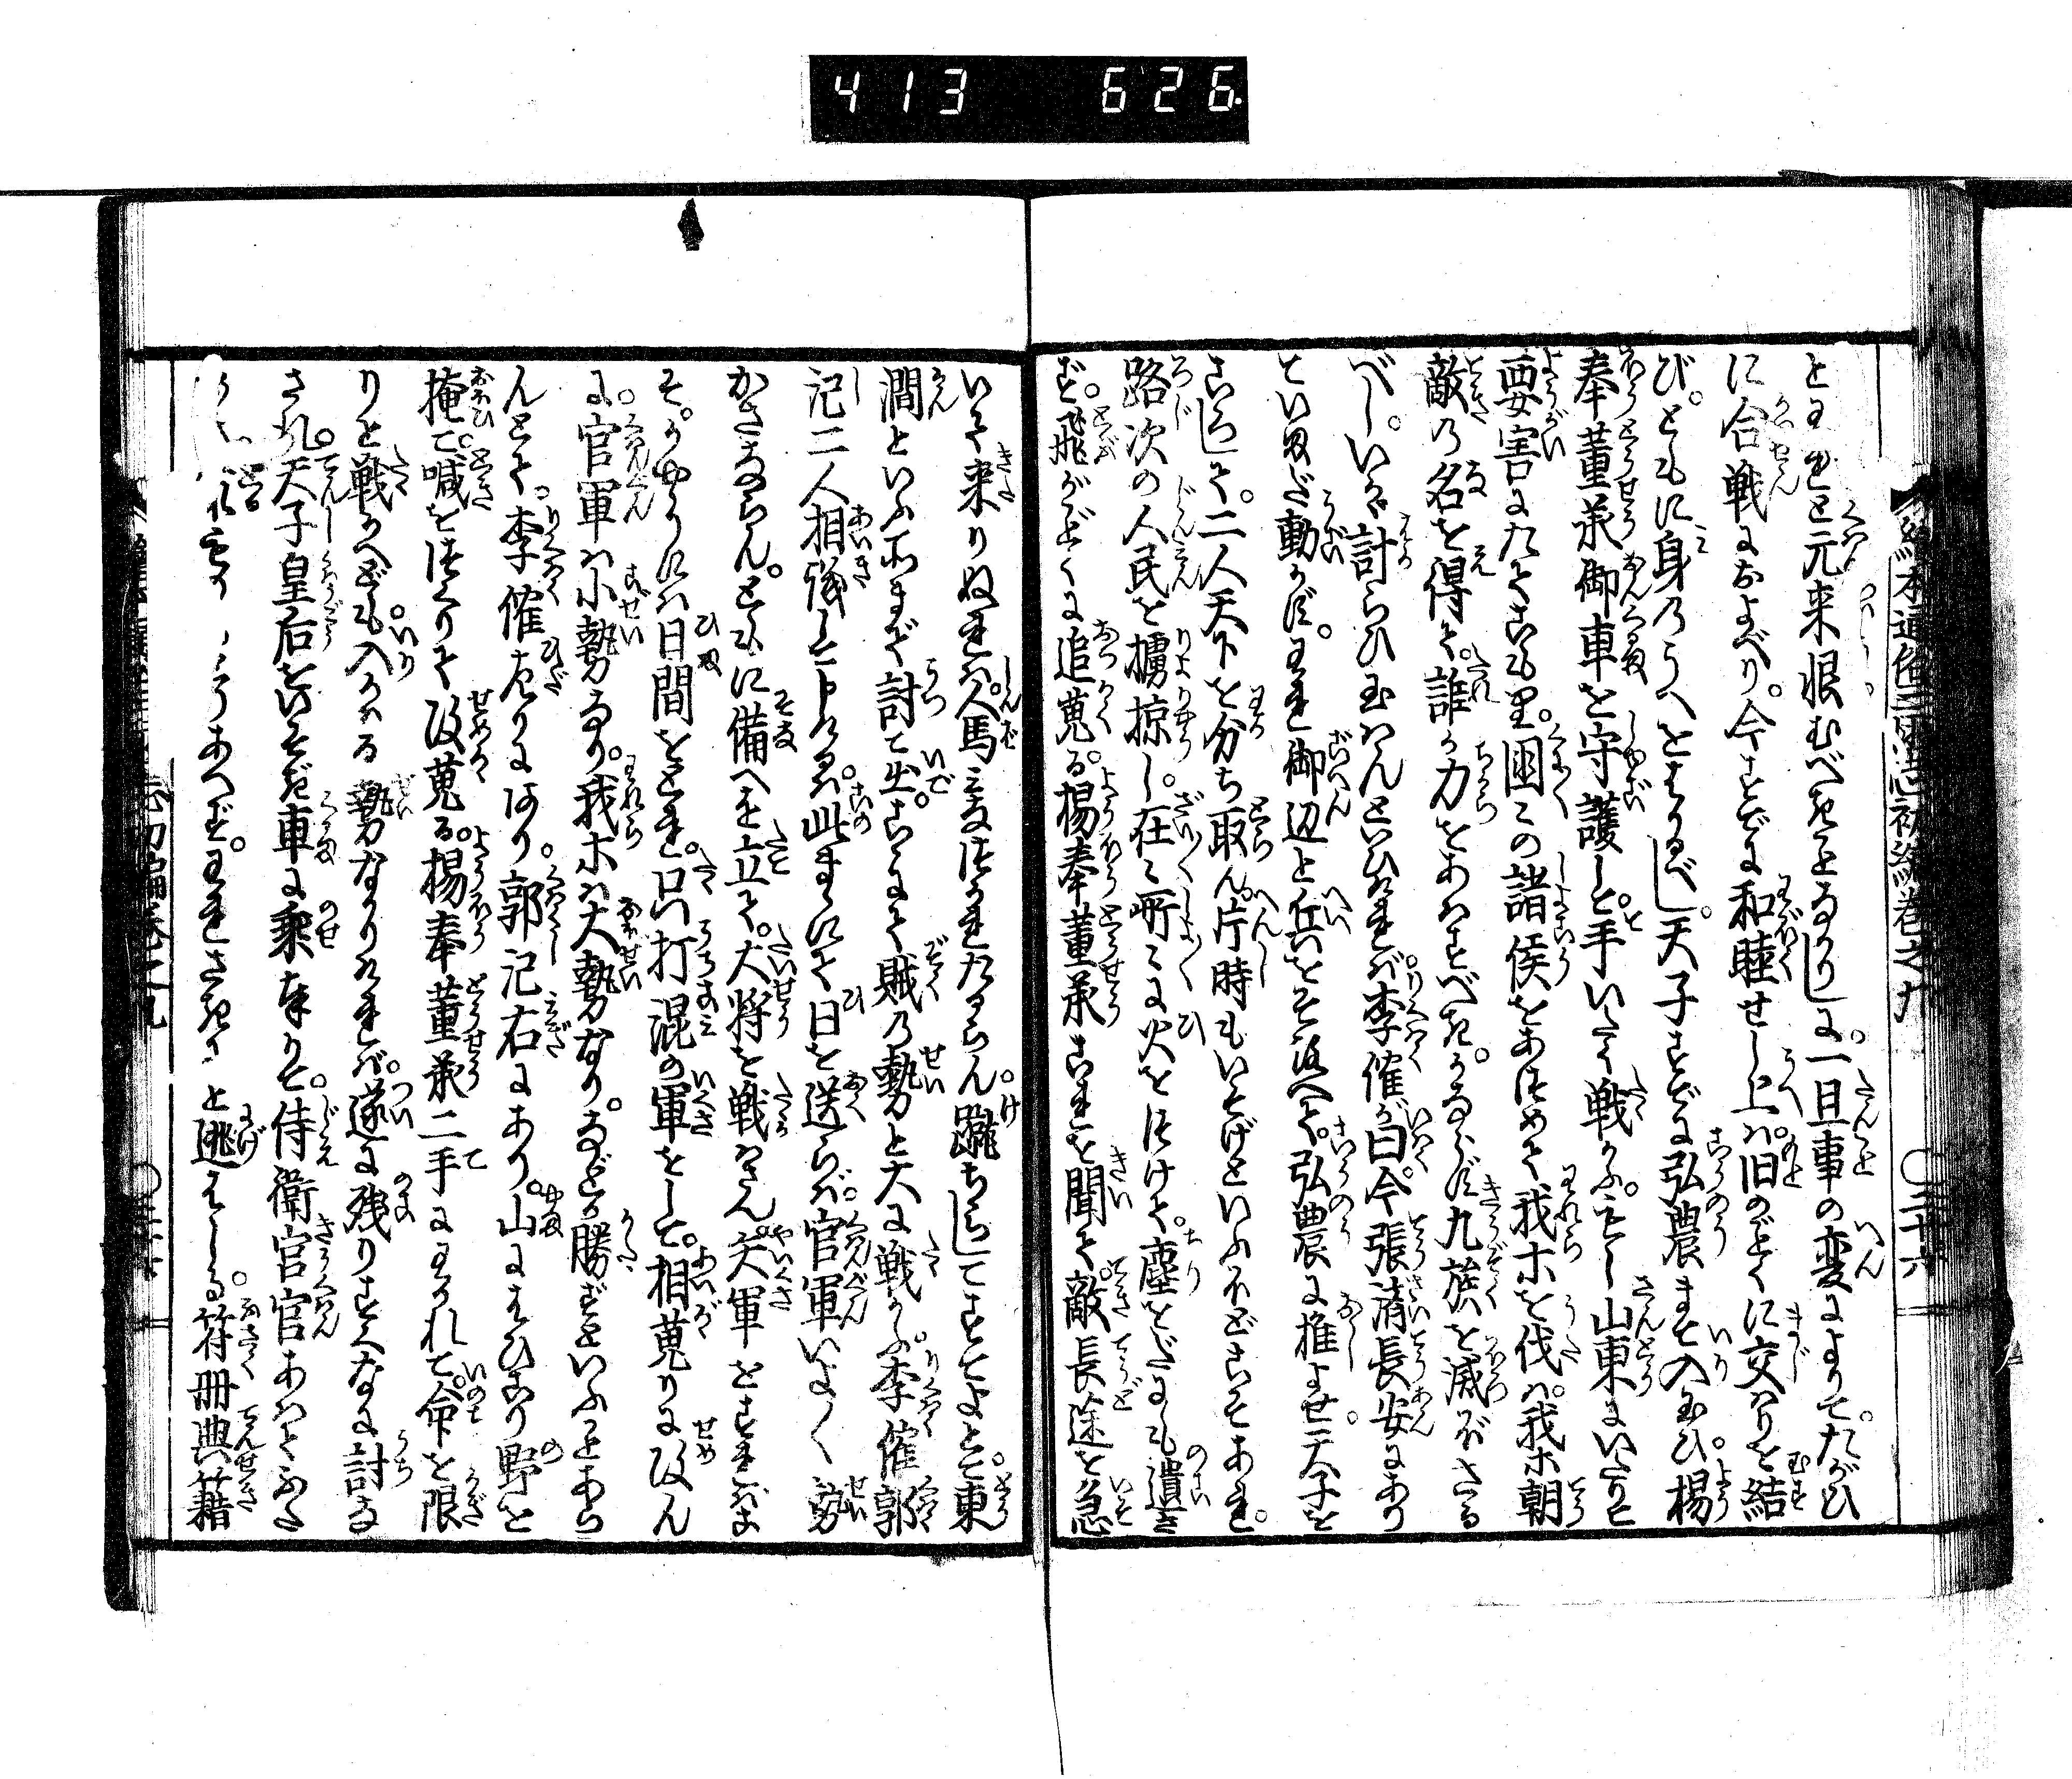 413 626.
絵本通俗三国志初編巻之九 〇三十六
とわれと元来恨むべきことなかりしに。一旦事の変によりて。たがひ
に合戦におよべり。今すでに和睦せし上は。旧のごとくに交りを結
び。ともに身のうへをはかるべし。天子すでに弘農まで入玉ひ。楊
奉董承御車を守護して。手いたく戦ふ。もし山東にいたりて
要害にたてこもり。国々の諸侯をあつめて我ホを伐は。我ホ朝
敵の名を得て。誰か力をあはすべき。かならず九族を滅ぼさる
べし。いかゞ計らひ玉はんといひければ。李傕が曰。今張済長安にあり
ていまだ動かず。われ御辺と兵をそろへて。弘農に推よせ。天子を
ころして。二人天下を分ち取ん。片時もいそげといふほどこそあれ。
路次の人民を擄掠し。在々所々に火をつけて。塵をだにも遺さ
ず。飛がごとくに追蒐る。楊奉董承これを聞て。敵長途を急
いで来りぬれば。人馬みなつかれたるらん。蹴ちらしてすてよとて。東
澗といふ所まで討て出。こゝにて賊の勢と大に戦ふ。李傕郭
汜二人相議して申けるは。此まゝにて日を送らば。官軍いよ〱勢
かさならん。ともに備へを立て。大将を戦はさん。矢軍をすればこ
そ。かやうには日間をとれ。只打混の軍をして。相蒐りに攻ん
に。官軍は小勢なり。我ホは大勢なり。などか勝ずといふことあら
んとて。李傕左りにあり。郭汜右にあり。山にはひこり野を
掩て。喊をつくりて攻蒐る。楊奉董承二手にわかれて。命を限
りと戦かへども。入かはる勢なかりければ。遂に残りすくなに討な
され。天子皇后をいそぎ車に乗奉りて。侍衛官官あはてふた
あへず。われさきにと逃はしる。符冊典籍